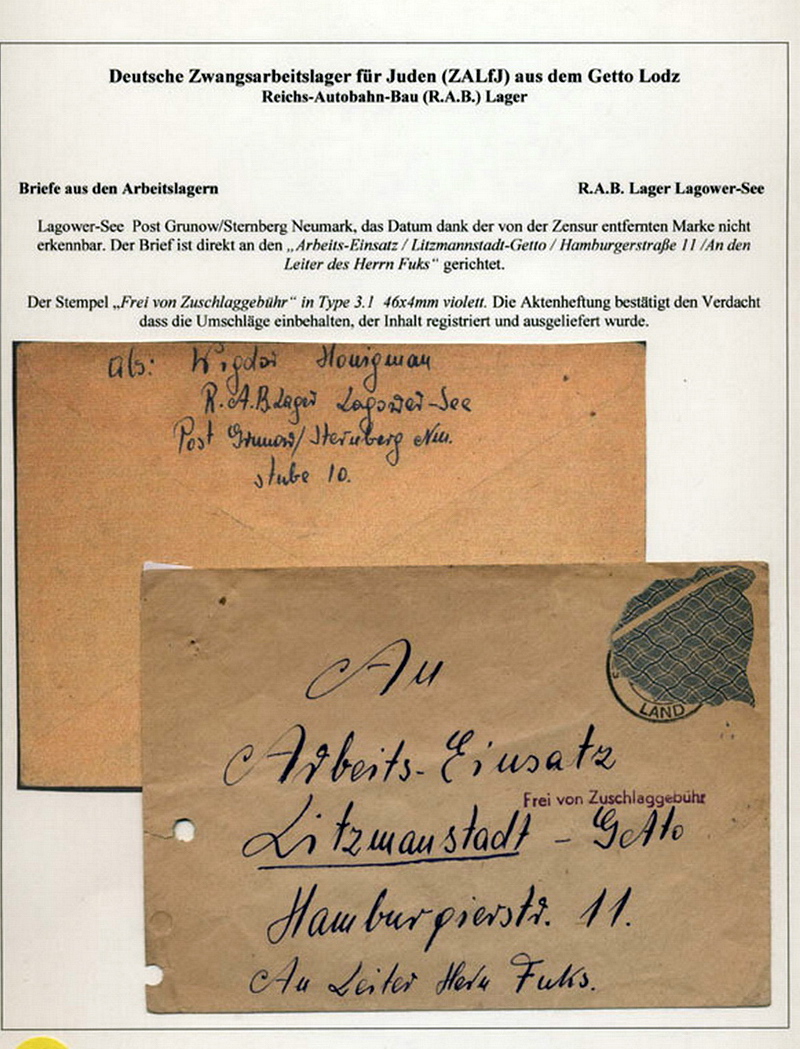 Deutsche Zwangsarbeitslager für Juden (ZALfJ) aus dem Getto Lodz
Reichs-Autobahn-Bau (R.A.B.) Lager
Briefe aus den Arbeitslagern
R.A.B. Lager Lagower-See
Lagower-See Post Grunow/Sternberg Neumark, das Datum dank der von der Zensur entfernten Marke nicht
erkennbar. Der Brief ist direkt an den „Arbeits-Einsatz / Litzmannstadt-Getto / Hamburgerstraße 11 /An den
Leiter des Herrn Fuks“ gerichtet.
Der Stempel „Frei von Zuschlaggebühr“ in Type 3.1 46x4mm violett. Die Aktenheftung bestätigt den Verdacht
dass die Umschläge einbehalten, der Inhalt registriert und ausgeliefert wurde.
Abs: Wigdor Honigman
R.A.B Lager Lagower-See
Post Grunow/Sternberg Nm.
stube 10.
LAND
An
Arbeits-Einsatz
Frei von Zuschlaggebühr
Litzmanstadt - Getto
Hamburgierstr. 11.
An Leiter Hern Fuks.